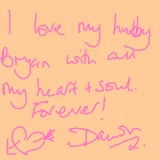 I love my hubby
Bryan with all
my heart + soul.
Forever!
Dawn